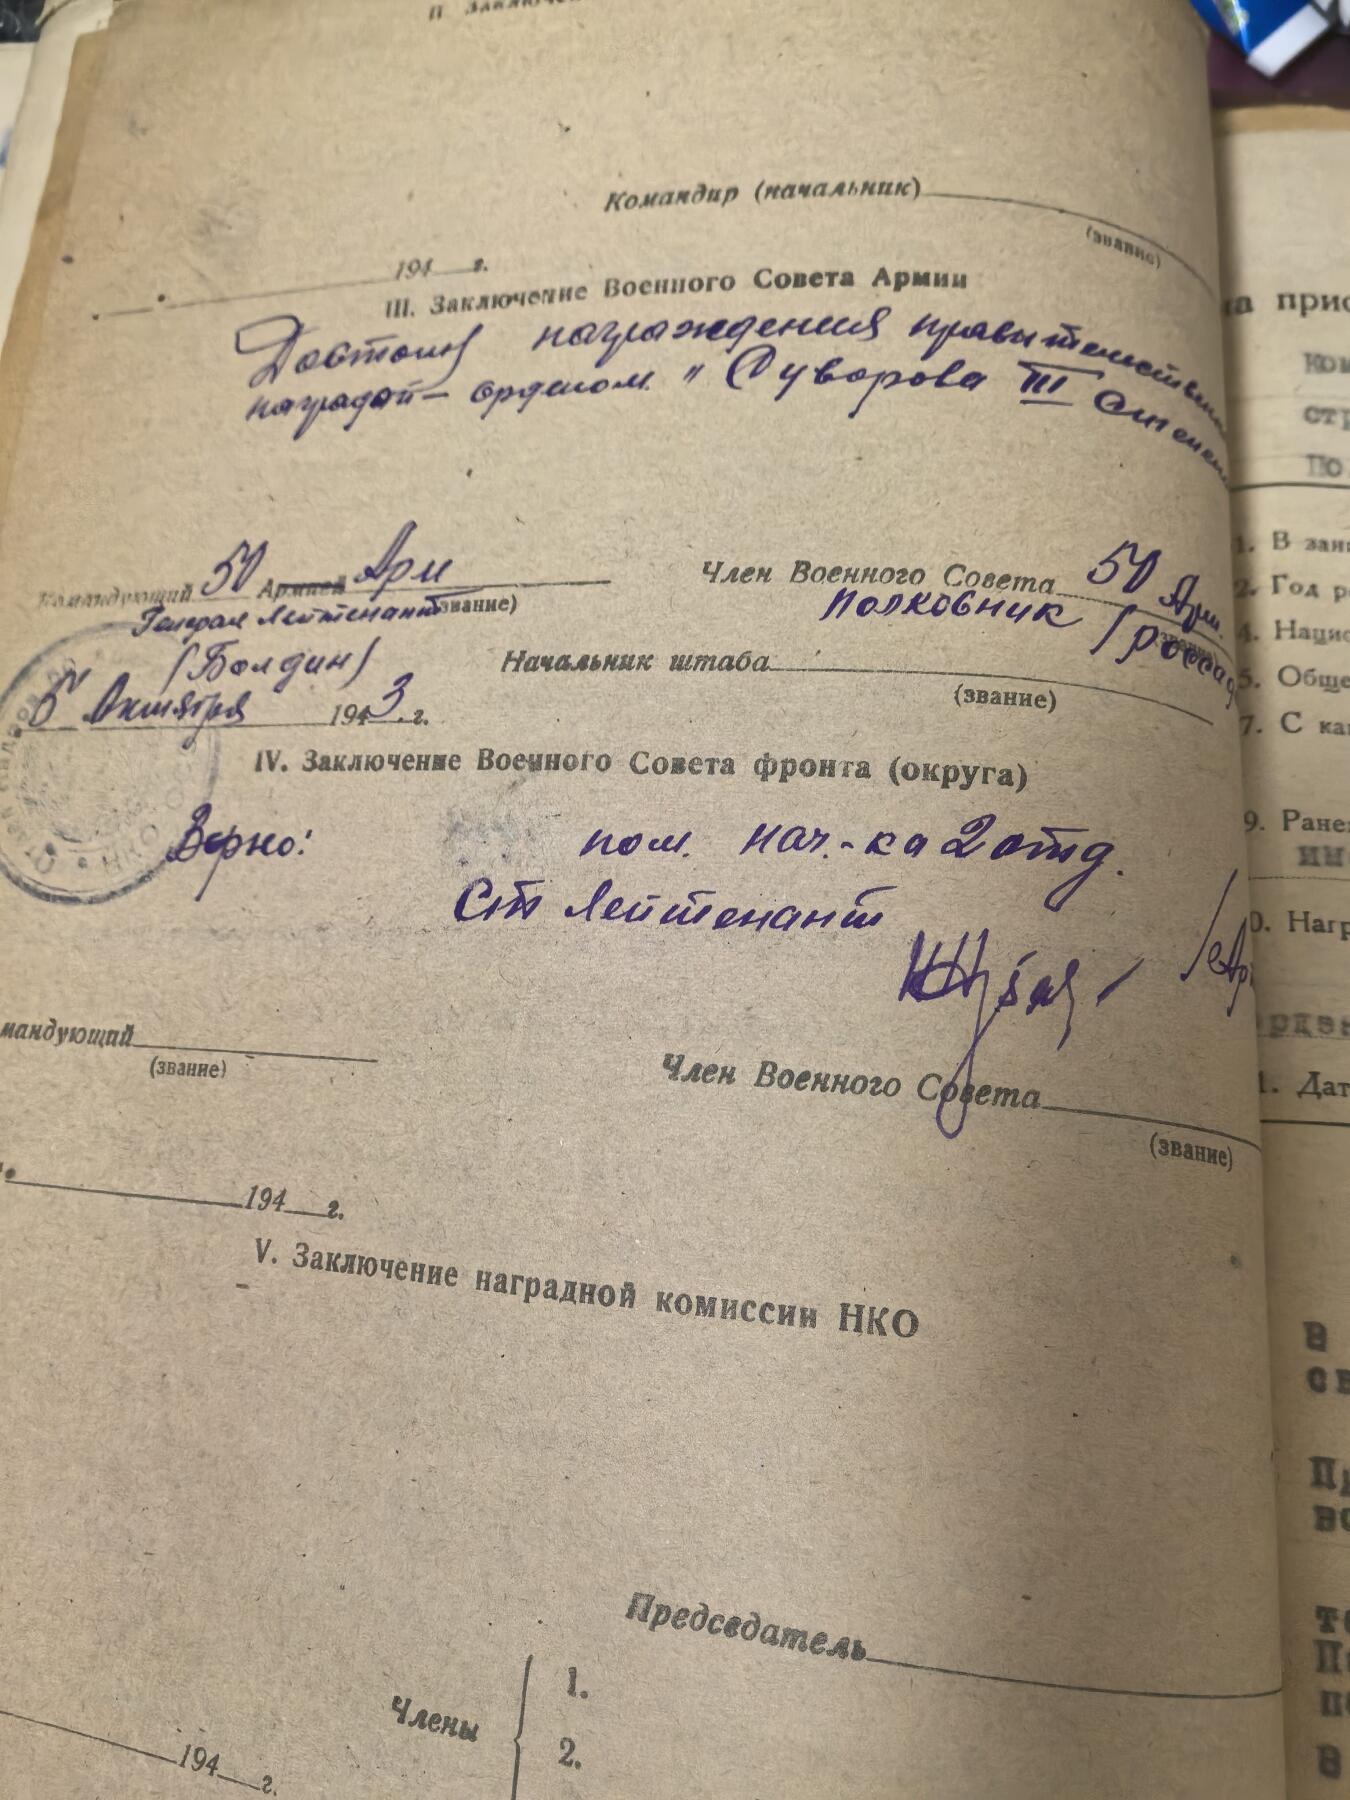 II Заключен
Командир (начальник)
(звание)
194 г.
III. Заключение Военного Совета Армии
Достоин награждения правительствен
наградой – орденом " Суворова III степени
Командующий 50 Армией Арм
Член Военного Совета 50 Арм.
(звание)
Генерал Лейтенант
Полковник
(Болдин)
Начальник штаба
(звание)
5 Октября 1943 г.
IV. Заключение Военного Совета фронта (округа)
Верно: пом. нач.-ка 2 отд.
Ст. Лейтенант
мандующий
(звание)
Член Военного Совета
(звание)
194 г.
V. Заключение наградной комиссии НКО
Председатель
Члены
1.
2.
194 г.
НКО
на прис
ком
стр
по
1. В зан
2. Год р
4. Нацио
5. Обще
7. С ка
9. Ране
0. Нагр
орден
1. Дат
В
св
Пр
во